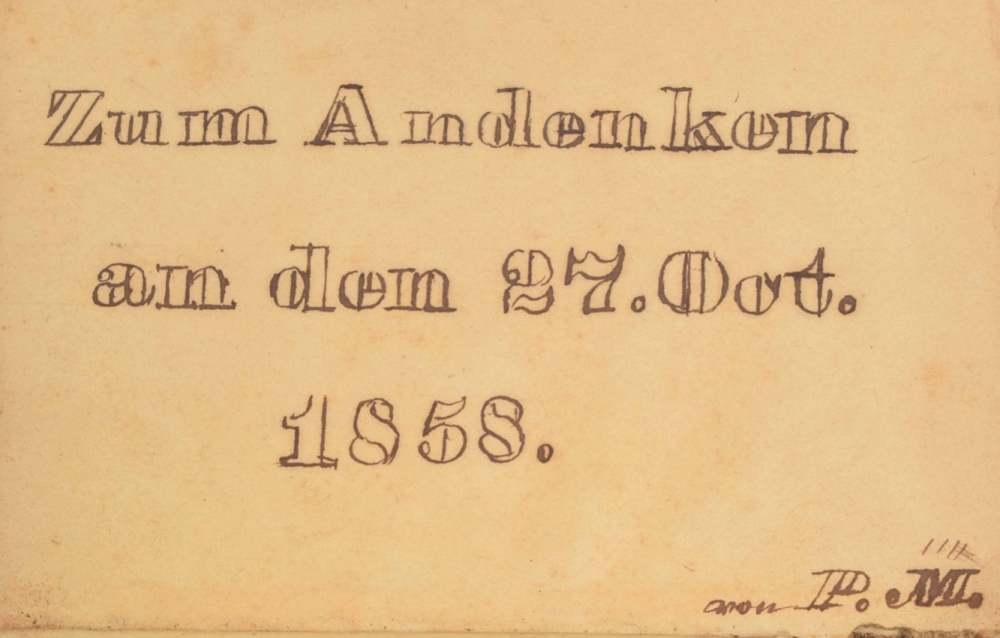 Zum Andenken
an den 27. Oct.
1858.
von P. M.